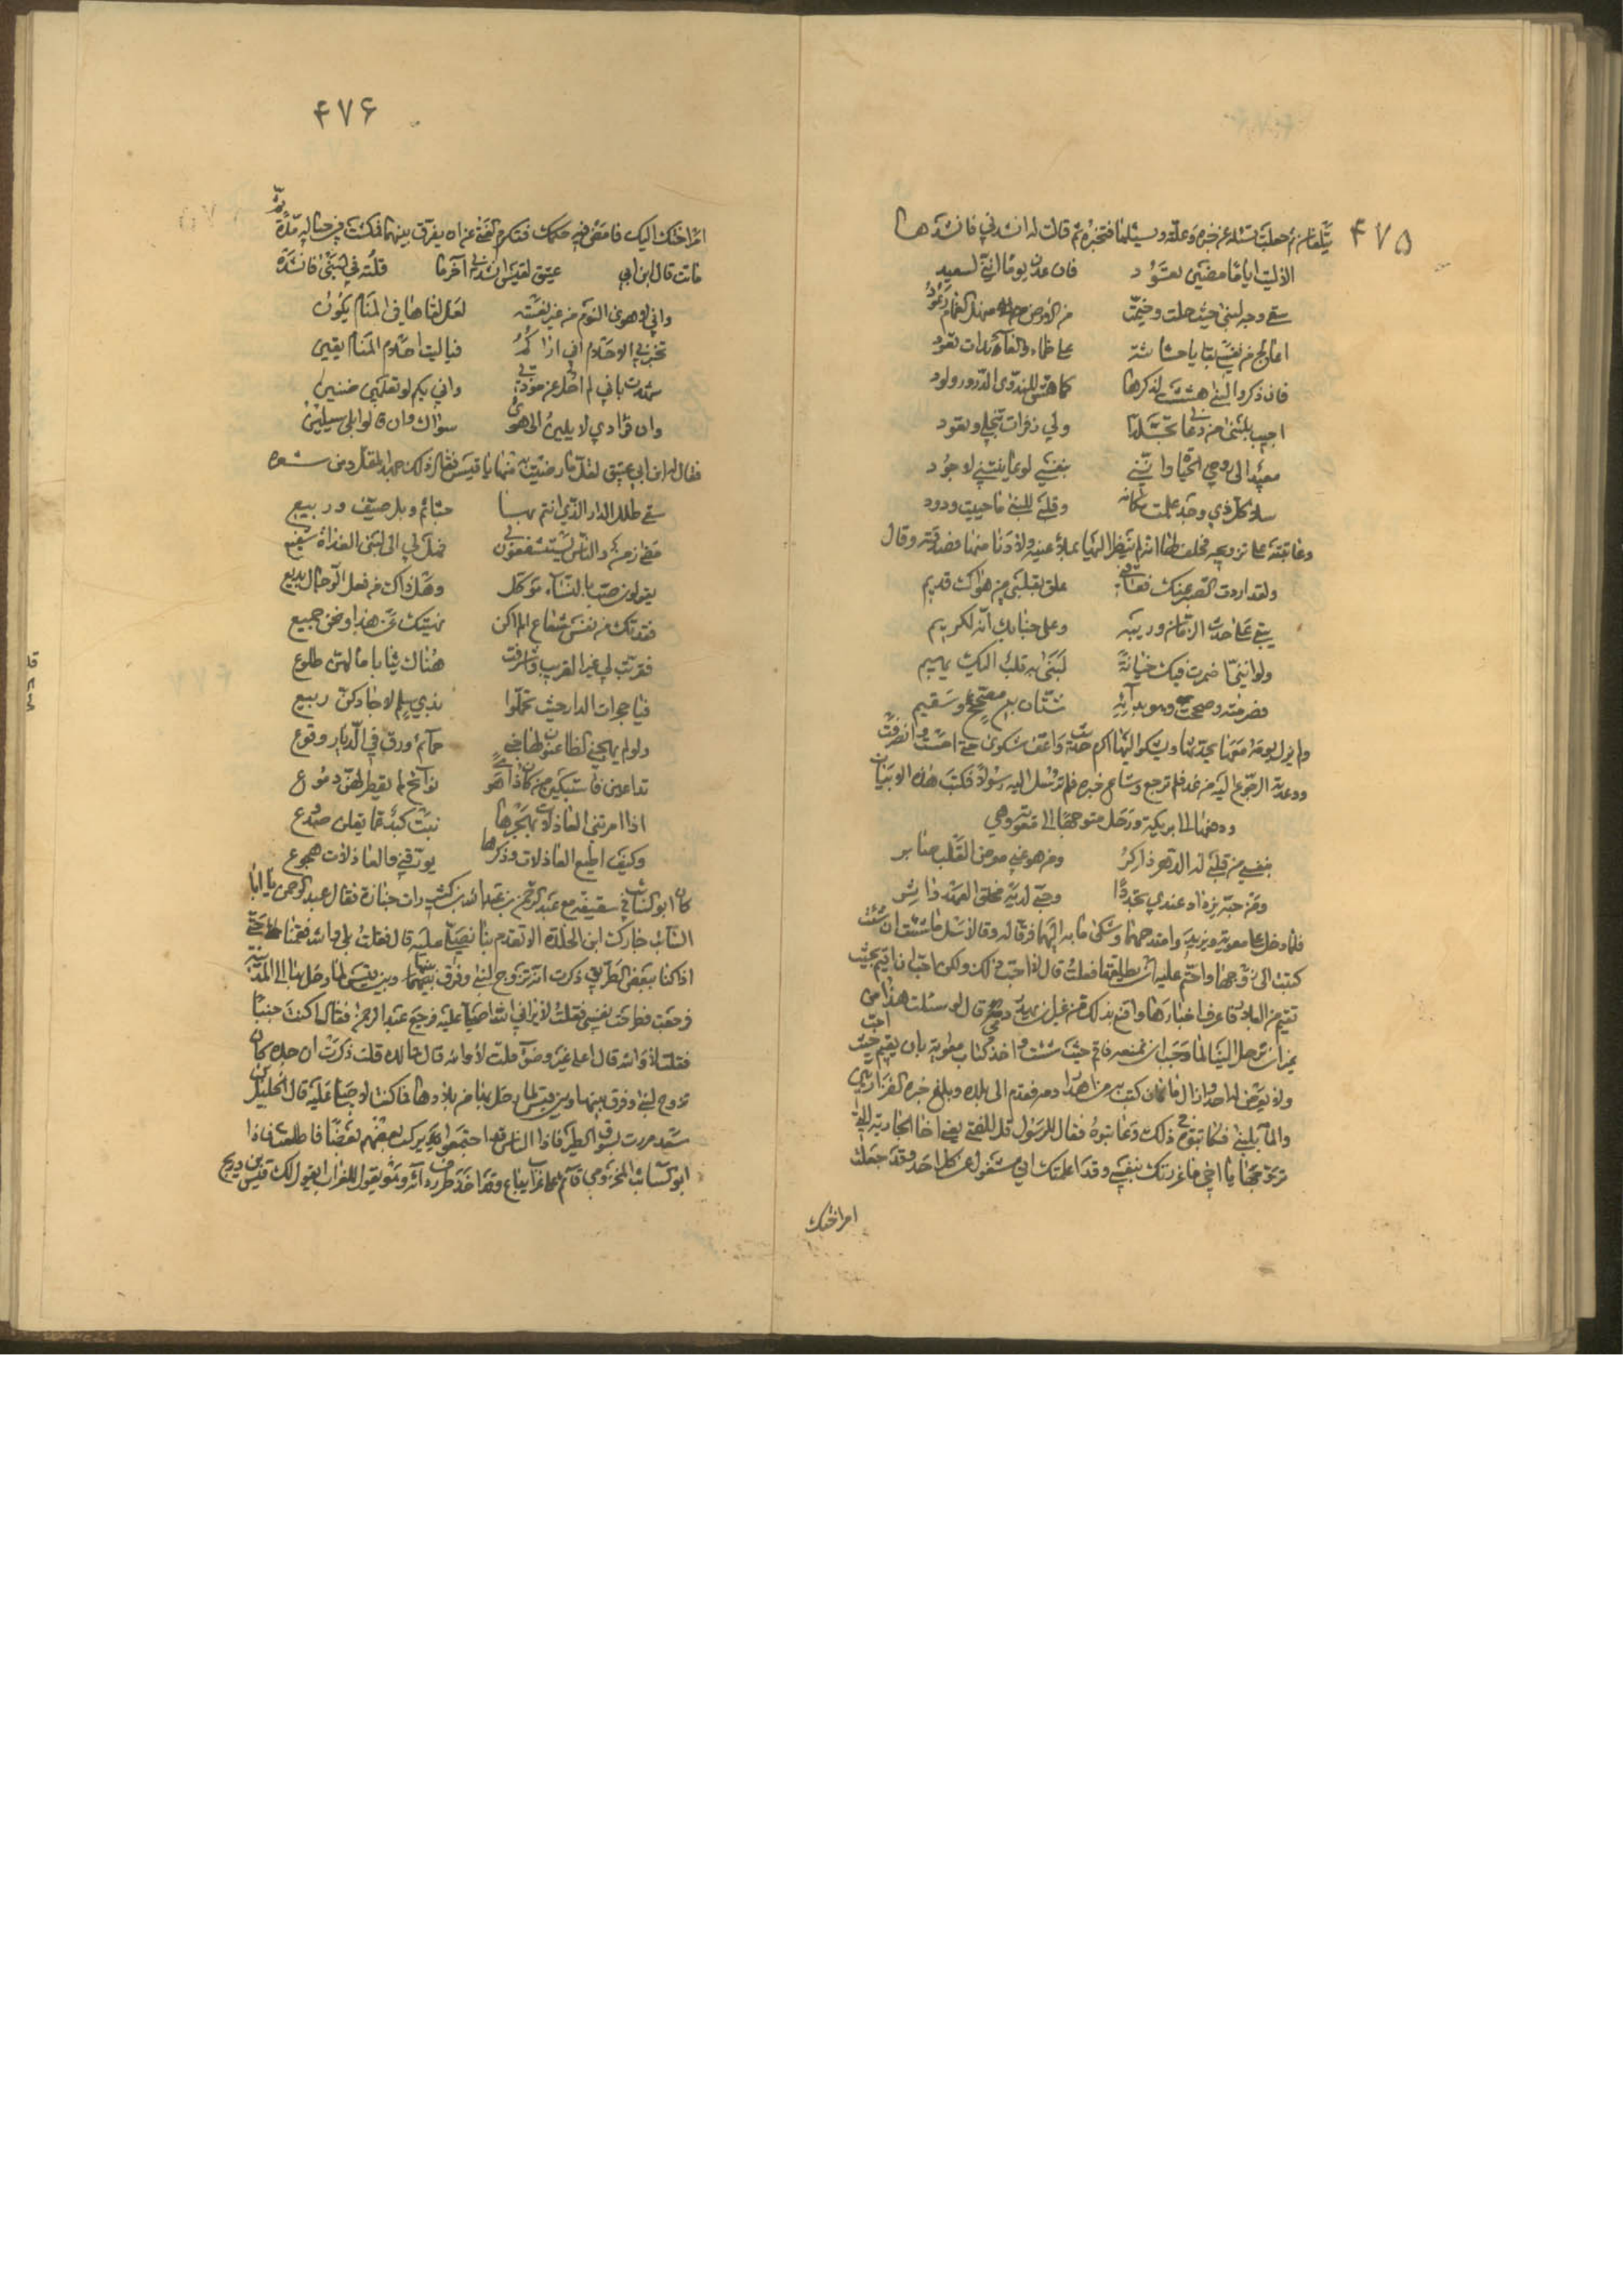 ۴۷۵
ثم جعلت تسئله عن خبره وعلته ويسئلها فتخبره ثم قالت له انشدني فانشدها
الا ليت اياما مضين تعود فان عدن يوما انني لسعيد
سقى دار لبنى حيث حلت وخيمت من الارض منهل الغمام رعود
فان ذكرت لبنى هششت لذكرها كما هش للثدي الدرور وليد
اجيب بلبنى من دعاني تجلدا ولي زفرات تنجلي وتعود
تعيد الى روحي الحياة وانني بنفسي لو عاينتني لاجود
سلا كل ذي وجد علمت مكانه وقلبي للبنى ما حييت ودود
وعاتبته على تزويجه فحلف لها انه لم ينظر اليها بملأ عينيه ولا دنا منها فصدقته وقال
ولقد اردت الصبر عنك فعاقني علق بقلبي من هواك قديم
يبقى على حدث الزمان وريبه وعلى جفائك انه لكريم
فصرمته وصححت وهو بدائه شتان بين مصحح وسقيم
ولم يزل يومه معها يحدثها ويشكو اليها اكرم حديث واعف شكوى حتى امسى وانصرفت
ووعدته الرجوع اليه من غد فلم ترجع وشاع خبره فلم ترسل اليه رسولا فكتب هذه الابيات
ودفعها الى بريكة ورحل متوجها الى معوية وهي
بنفسي من قلبي له الدهر ذاكر ومن هو عني معرض القلب صابر
ومن حبه يزداد عندي تجددا وحبي لديه مخلق العهد داثر
فلما دخل على معوية ويزيد وامتدحهما وشكى ما به اليهما فرقا له وقالا سل ما شئت ان شئت
كتبت الى زوجها واحتم عليه ان يطلقها فعلت قال لا احب ذلك ولكن احب ان اقيم بحيث
تقيم من البلاد فاعرف اخبارها واقنع بذلك من غير ان يهدر دمي قال لو سئلت هذا من
غير ان ترحل الينا لما وجب ان تمنعه فاقم حيث شئت واخذ كتاب معوية بان يقيم حيث احب
ولا يعرض له احد وازال ما كان كتب به من اهدار دمه فقدم الى بلده وبلغ خبره الفزاريين
والمامه بلبنى فكاتبوه في ذلك وعاتبوه فقال للرسول قل للفتى يعني اخا الجارية التي
تزوجها يا اخي ما غررتك بنفسي وقد اعلمتك اني مشغول عن كل احد وقد جعلت
امر اختك
۴۷۶
امر اختك اليك فامض فيه حكمك فتكرم الفتى عن ان يفرق بينهما فمكثت في حباله مدة ثم
ماتت قال ابن ابي عتيق لقيس انشدني آخر ما قلته في لبنى فانشده
واني لاهوى النوم من غير نعسة لعل لقاها في المنام يكون
تخبرني الاحلام اني اراكم فيا ليت احلام المنام يقين
شهدت باني لم احل عن مودة واني بكم لو تعلمين ضنين
وان فؤادي لا يلين الى هوى سواك وان قالوا بلى سيلين
فقال له ابن ابي عتيق لقل ما رضيت به منها يا قيس فقال ذلك جهد المقل ومن شعره
سقى طلل الدار الذي انتم بها حناتم وبل صيف وربيع
مضى زمن والناس يستشفعون بي فهل لي الى لبنى الغداة شفيع
يقولون صب بالنساء موكل وهل ذاك من فعل الرجال بديع
فقدتك من نفس شعاع الم اكن نهيتك عن هذا ونحن جميع
فقربت لي غير القريب واشرفت هناك ثنايا ما لهن طلوع
فيا حجرات الدار حيث تحملوا بذي سلم لا جادكن ربيع
ولو لم يهجني الظاعنون لهاجني حمائم ورق في الديار وقوع
تداعين فاستبكين من كان ذا هوى نوائح لم تقطر لهن دموع
اذا امرتني العاذلات بهجرها نبت كبد عما يقلن صدوع
وكيف اطيع العاذلات وذكرها يورقني والعاذلات هجوع
كان ابو السائب في سقيفة مع عبد الرحمن بن عبد الله بن كثير فرات جنازة فقال عبد الرحمن يا ابا
السائب جارك ابن الا تقدم بنا نصلي عليه قال فقلت بلى والله فقمنا حتى
اذا كنا ببعض الطريق ذكرت انه تزوج لبنى وفرق بينها وبين قيس لما رحل بها الى المدينة
فرجعت فطرحت نفسي فقلت لا يراني الله اصلي عليه فرجع عبد الرحمن فقال اكنت جنبا
فقلت لا والله قال فعلى غير وضوء قلت لا والله قال فما لك قلت ذكرت ان جده كان
تزوج لبنى وفرق بينها وبين قيس لما رحل بها من بلادها فما كنت لاصلي عليه قال الخليل بن
سعد مررت بسوق الطير فاذا الناس قد اجتمعوا يركب بعضهم بعضا فاطلعت فاذا
ابو السائب المخزومي قائم على غراب يباع وقد اخذ طرف ردائه وهو يقول للغراب يقول لك قيس بن ذريح